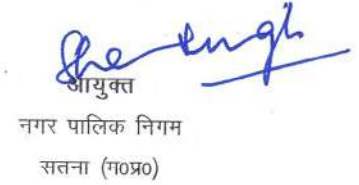 आयुक्त
नगर पालिक निगम
सतना (म०प्र०)